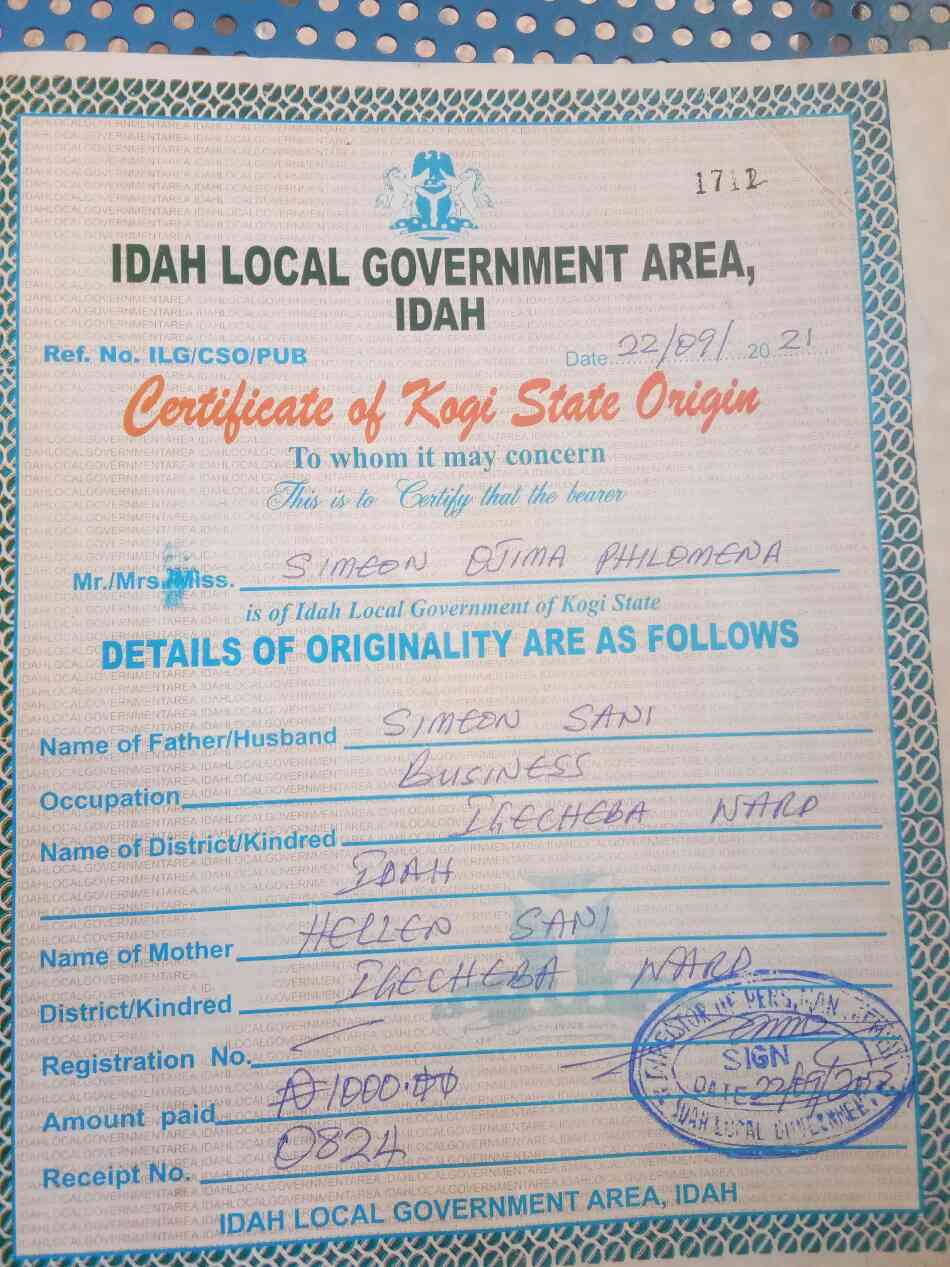 1712
IDAH LOCAL GOVERNMENT AREA,
IDAH
Ref. No. ILG/CSO/PUB
Date 22/09/ 20 21
Certificate of Kogi State Origin
To whom it may concern
This is to Certify that the bearer
Mr./Mrs./Miss. SIMEON OJIMA PHILOMENA
is of Idah Local Government of Kogi State
DETAILS OF ORIGINALITY ARE AS FOLLOWS
Name of Father/Husband SIMEON SANI
Occupation BUSINESS
Name of District/Kindred IGECHEBA WARD
IDAH
Name of Mother HELLEN SANI
District/Kindred IGECHEBA WARD
Registration No.
SIGN
DATE 22/09/
IDAH LOCAL GOVERNMENT
Amount paid ₦1000.00
Receipt No. 0824
IDAH LOCAL GOVERNMENT AREA, IDAH